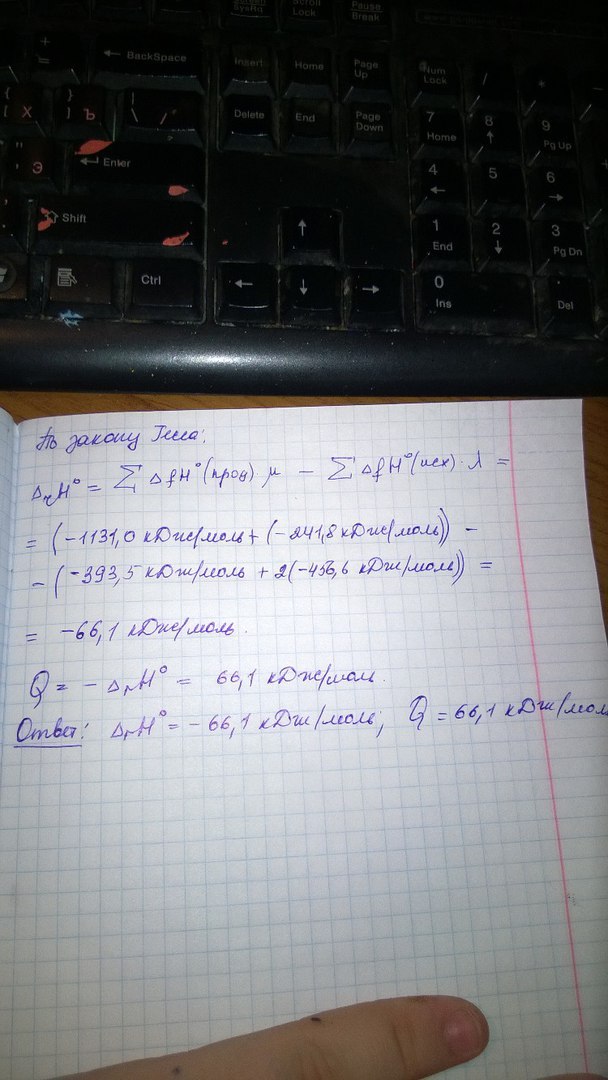 Screen SysRn
Scroll Lock
Pause Break
+ =
← BackSpace
Insert
Home
Page Up
Num Lock
/
*
{ [ Х
} ] Ъ
| \ /
Delete
End
Page Down
7 Home
8 ↑
9 Pg Up
" ' Э
← Enter
4 ←
5
6 →
⇧ Shift
↑
1 End
2 ↓
3 Pg Dn
Ctrl
←
↓
→
0 Ins
. Del
По закону Гесса:
ΔrH° = ∑ ΔfH°(прод)·μ − ∑ ΔfH°(исх)·λ =
= (-1131,0 кДж/моль + (-241,8 кДж/моль)) −
− (-393,5 кДж/моль + 2(-456,6 кДж/моль)) =
= -66,1 кДж/моль.
Q = − ΔrH° = 66,1 кДж/моль.
Ответ: ΔrH° = -66,1 кДж/моль; Q = 66,1 кДж/моль